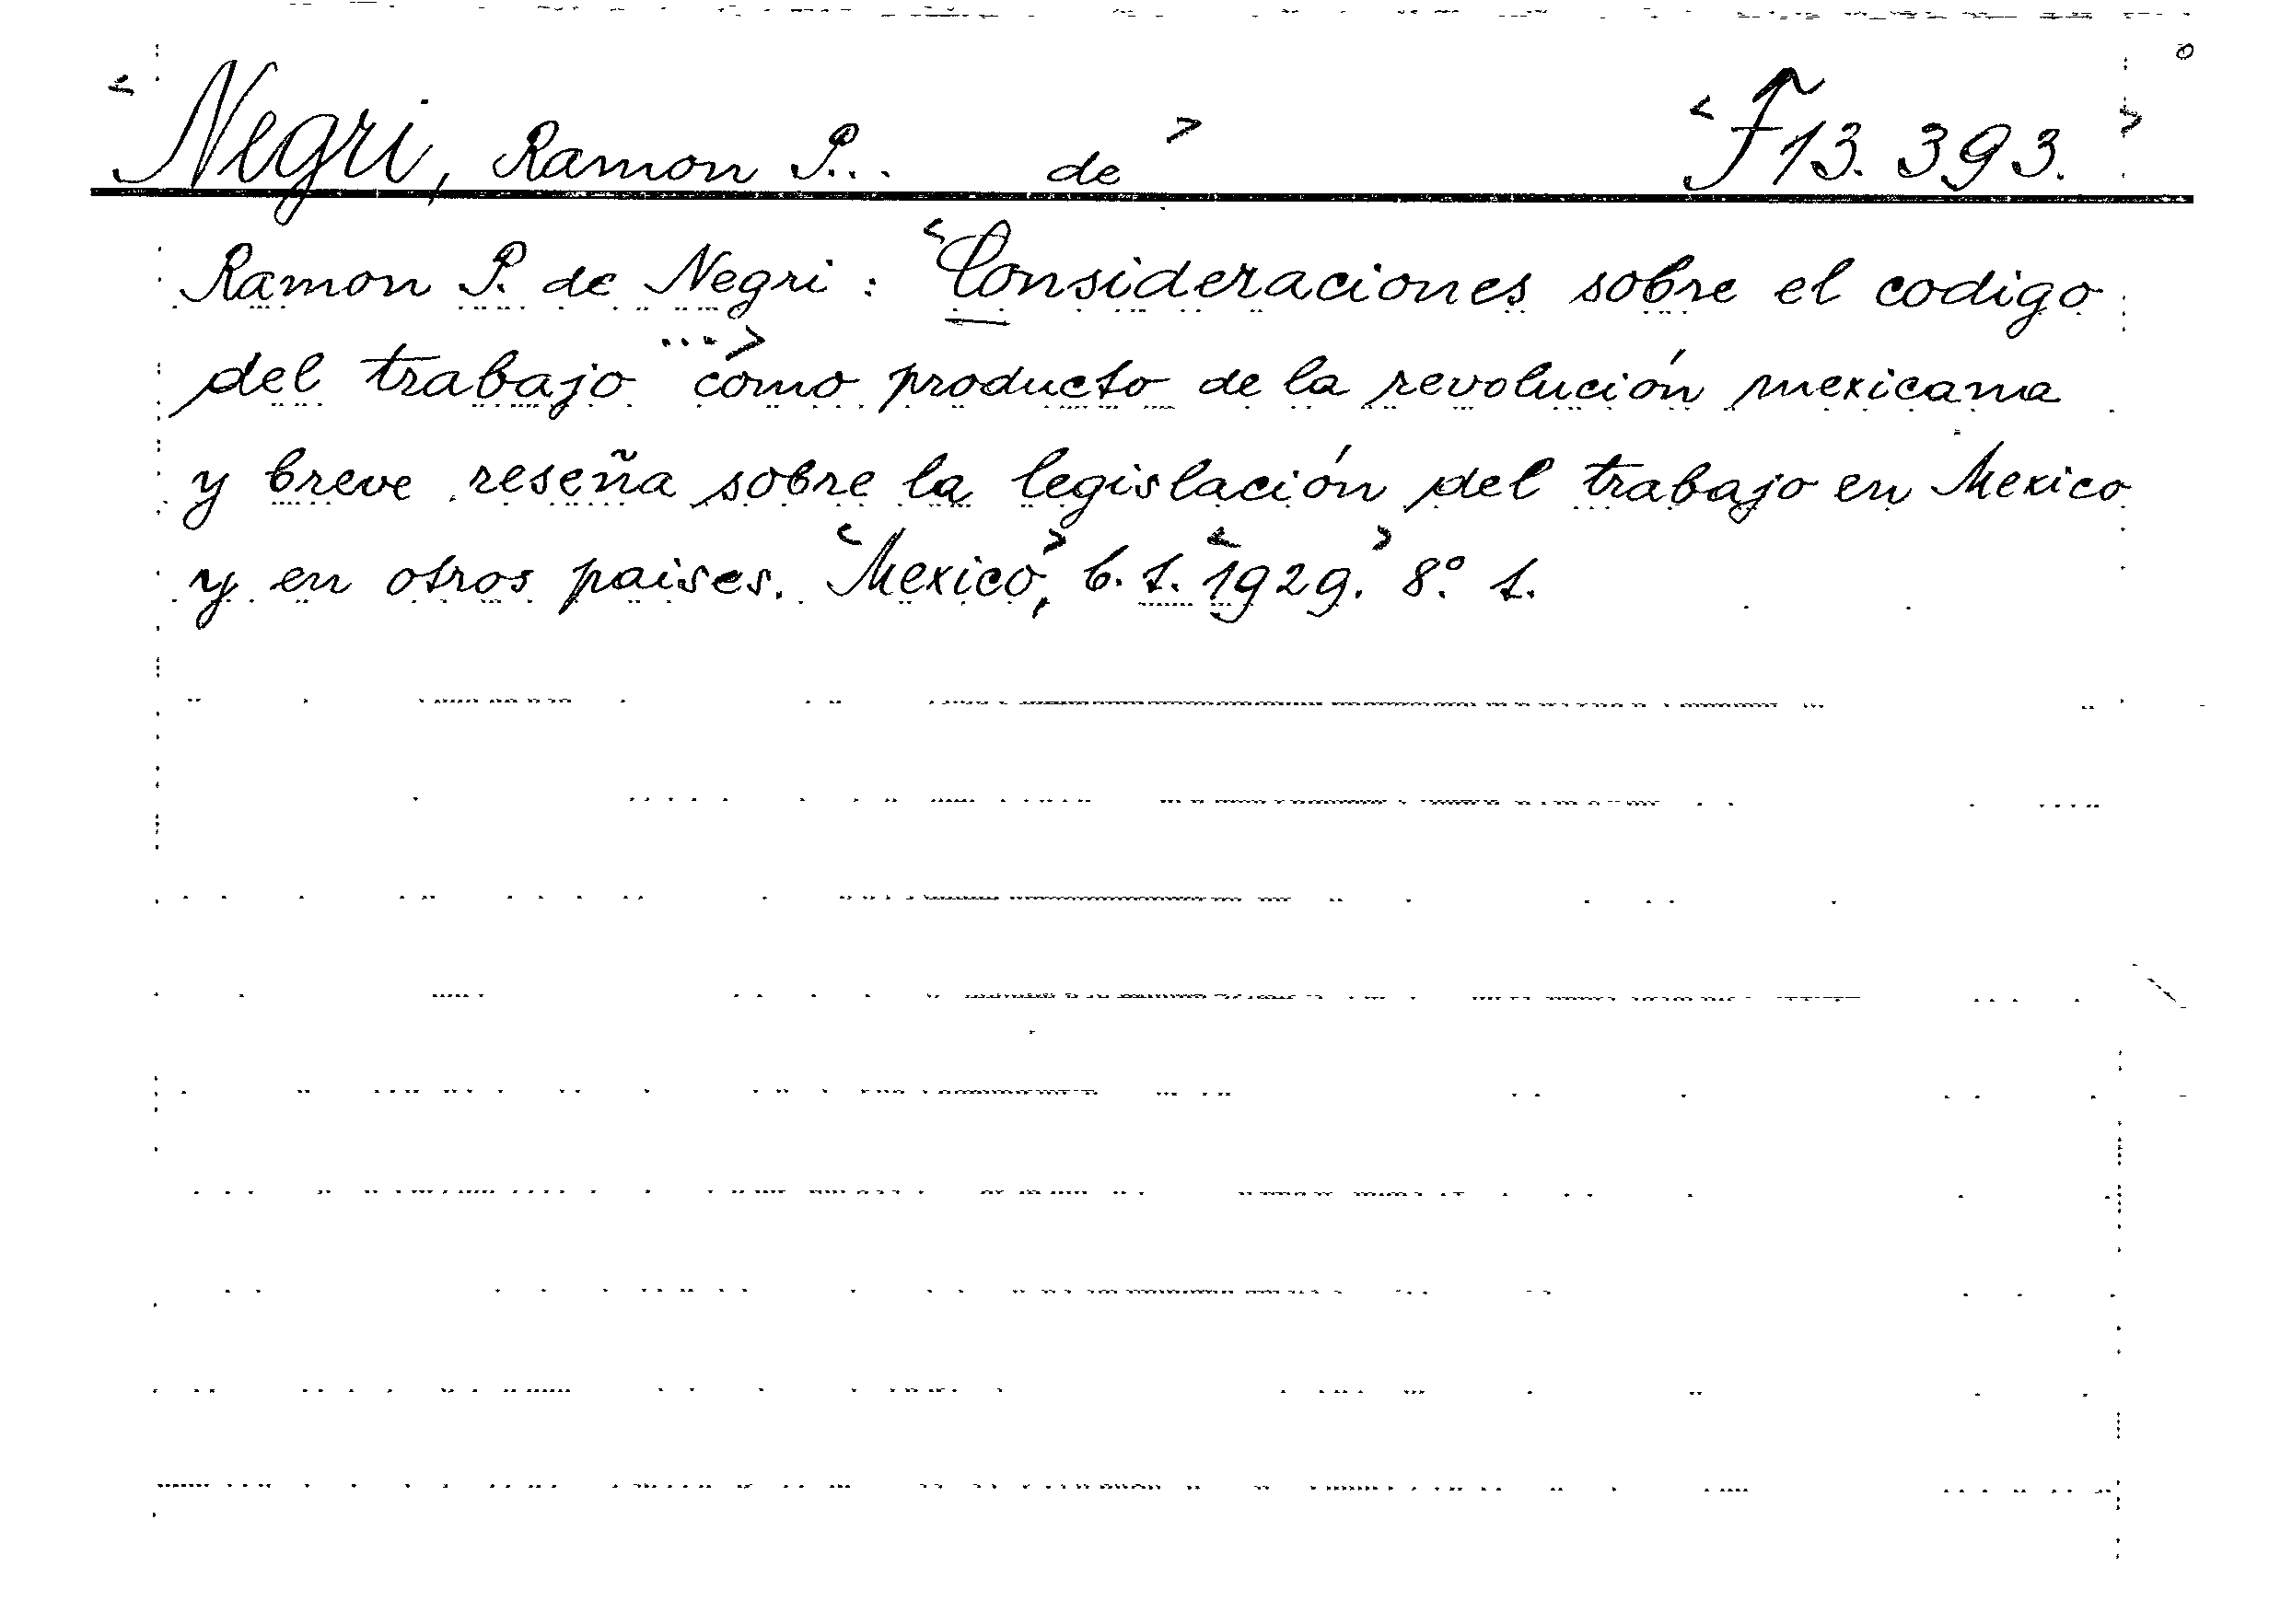 <Negri, Ramon P... de> <F 13.393.>
Ramon P. de Negri: <Consideraciones sobre el codigo
del trabajo ...> como producto de la revolución mexicana
y breve reseña sobre la legislación del trabajo en Mexico
y en otros paises. <Mexico>, b. t. <1929.> 8º. t.